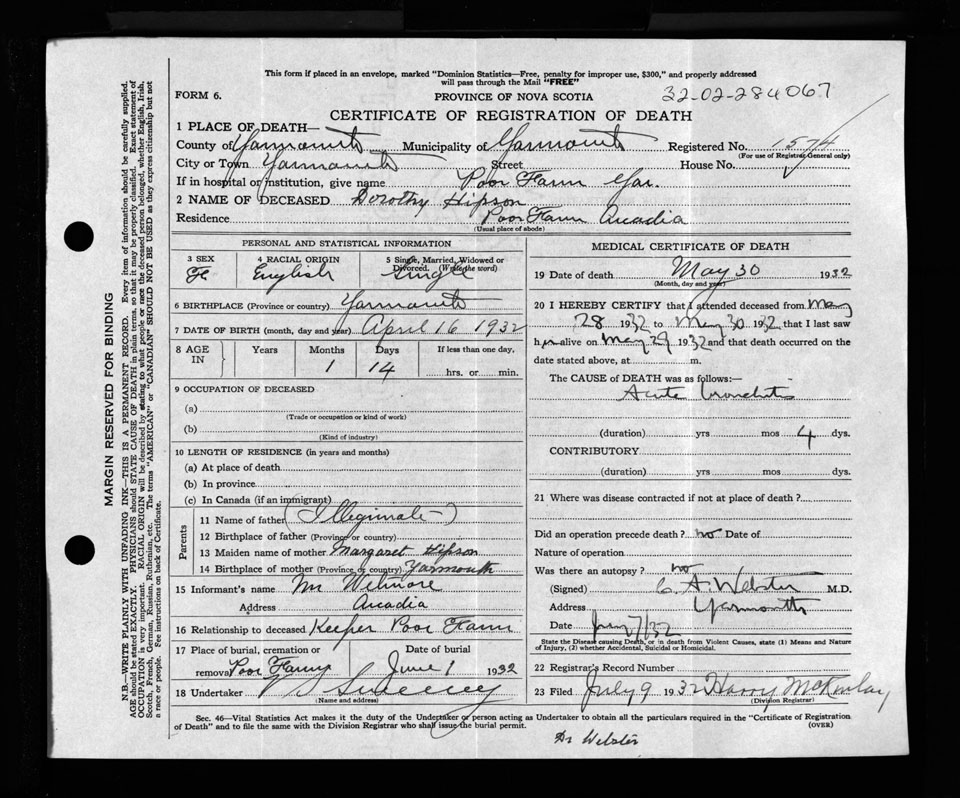 This form if placed in an envelope, marked "Dominion Statistics—Free, penalty for improper use, $300," and properly addressed
will pass through the Mail "FREE"
FORM 6. PROVINCE OF NOVA SCOTIA 32-02-284067
CERTIFICATE OF REGISTRATION OF DEATH
1 PLACE OF DEATH—
County of Yarmouth Municipality of Yarmouth Registered No. 1574
(For use of Registrar General only)
City or Town Yarmouth Street House No.
If in hospital or institution, give name Poor Farm Yar.
2 NAME OF DECEASED Dorothy Hipson
Residence Poor Farm Arcadia
(Usual place of abode)
PERSONAL AND STATISTICAL INFORMATION
3 SEX 4 RACIAL ORIGIN 5 Single, Married, Widowed or
Divorced. (Write the word)
Fe English Single
6 BIRTHPLACE (Province or country) Yarmouth
7 DATE OF BIRTH (month, day and year) April 16 1932
8 AGE IN Years Months Days If less than one day,
1 14 hrs. or min.
9 OCCUPATION OF DECEASED
(a)
(Trade or occupation or kind of work)
(b)
(Kind of industry)
10 LENGTH OF RESIDENCE (in years and months)
(a) At place of death
(b) In province
(c) In Canada (if an immigrant)
Parents
11 Name of father (Illegimate)
12 Birthplace of father (Province or country)
13 Maiden name of mother Margaret Hipson
14 Birthplace of mother (Province or country) Yarmouth
15 Informant's name Mr Wetmore
Address Arcadia
16 Relationship to deceased Keeper Poor Farm
17 Place of burial, cremation or Date of burial
removal Poor Farm June 1 1932
18 Undertaker Sweeney
(Name and address)
MEDICAL CERTIFICATE OF DEATH
19 Date of death May 30 1932
(Month, day and year)
20 I HEREBY CERTIFY that I attended deceased from May
28 1932 to May 30 1932 that I last saw
her alive on May 29 1932 and that death occurred on the
date stated above, at m.
The CAUSE of DEATH was as follows:—
Acute bronchitis
(duration) yrs mos 4 dys.
CONTRIBUTORY
(duration) yrs mos dys.
21 Where was disease contracted if not at place of death?
Did an operation precede death? no Date of
Nature of operation
Was there an autopsy? no
(Signed) C. A. Webster M.D.
Address Yarmouth
Date 7/32
State the Disease causing Death, or in death from Violent Causes, state (1) Means and Nature
of Injury, (2) whether Accidental, Suicidal or Homicidal.
22 Registrar's Record Number
23 Filed July 9 1932 Harry McKinlay
(Division Registrar)
Sec. 46—Vital Statistics Act makes it the duty of the Undertaker or person acting as Undertaker to obtain all the particulars required in the "Certificate of Registration
of Death" and to file the same with the Division Registrar who shall issue the burial permit. (OVER)
Dr Webster
MARGIN RESERVED FOR BINDING
N.B.—WRITE PLAINLY WITH UNFADING INK—THIS IS A PERMANENT RECORD. Every item of information should be carefully supplied.
AGE should be stated EXACTLY. PHYSICIANS should STATE CAUSE OF DEATH in plain terms, so that it may be properly classified. Exact statement of
OCCUPATION is very important. RACIAL ORIGIN will be described by stating to what people or race the deceased person belonged, whether English, Irish,
Scotch, French, German, Russian, Ruthenian, etc. The terms "AMERICAN" or "CANADIAN" SHOULD NOT BE USED as they express citizenship but not
a race or people. See instructions on back of Certificate.